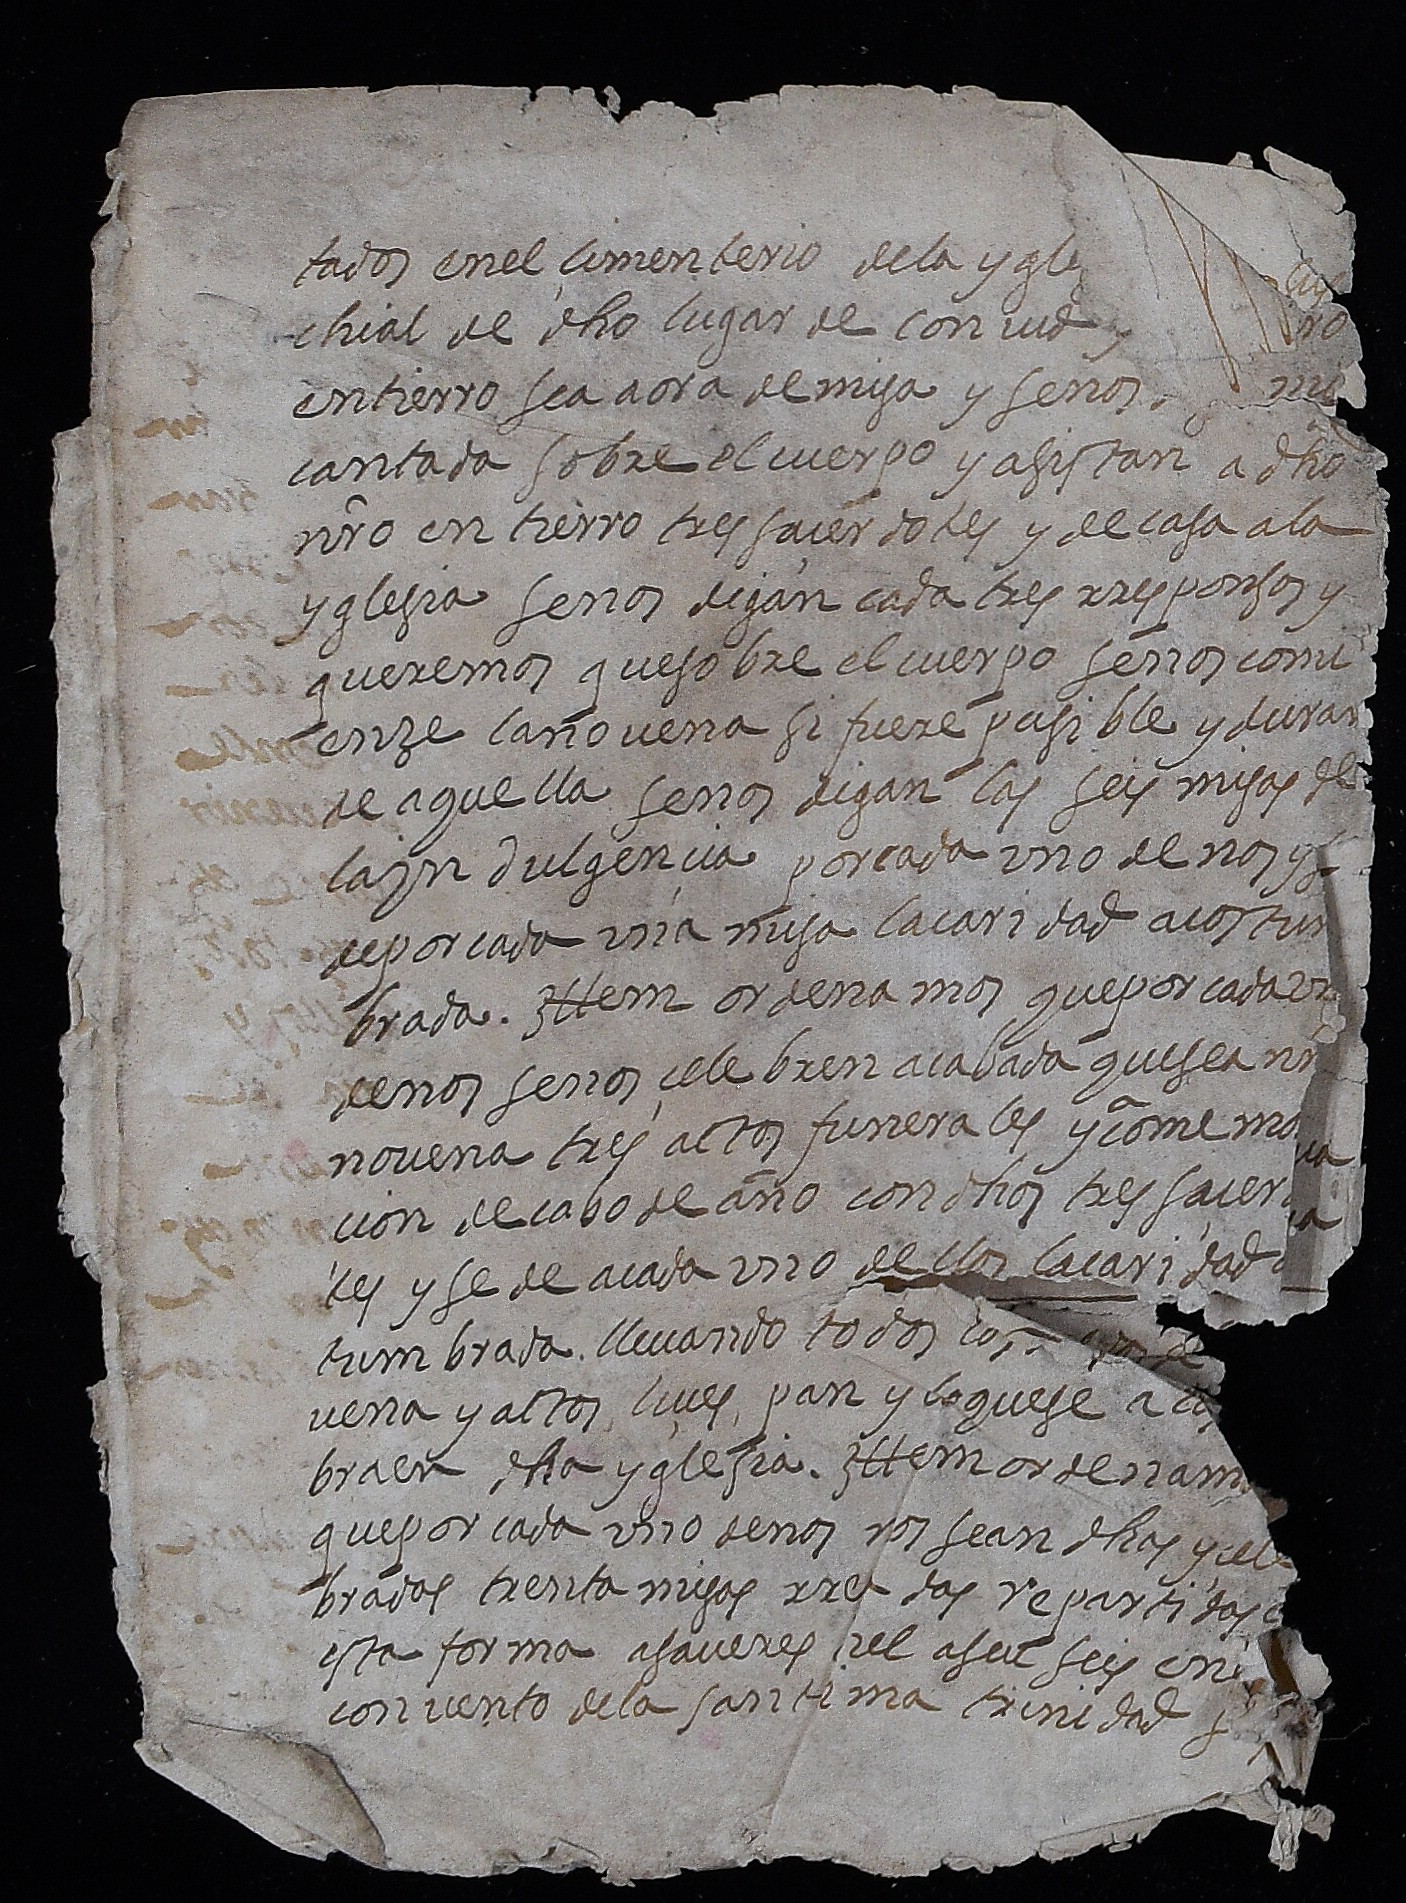 tados en el cimenterio dela ygle
chial de dho lugar de Conud y
entierro sea a ora de misa y senos
cantada sobre el cuerpo y asistan a dho
nro en tierro tres sacerdotes y de casa ala
yglesia senos digan cada tres rresponsos y
queremos que sobre el cuerpo senos comi
enze la nouena si fuere pusible y duran
de aquella senos digan las seis misas de
la yn dulgencia por cada uno de nos y se
de por cada una misa la cari dad acostum
brada. Ittem ordenamos que por cada un
de nos senos cele bren acabada que sea nra
nouena tres actos funerales y come mora
cion de cabo de año con dhos tres sacer
tes y se de a cada uno dellos la cari dad
tum brada. lleuando todos los
uena y actos, luces, pan y lo que se a cos
bra en dha yglesia. Ittem ordenam
que por cada uno denos nos sean dhas y cele
bradas trenta misas rreca das repartidas
esta forma asaueres
conuento dela santi ma trinidad